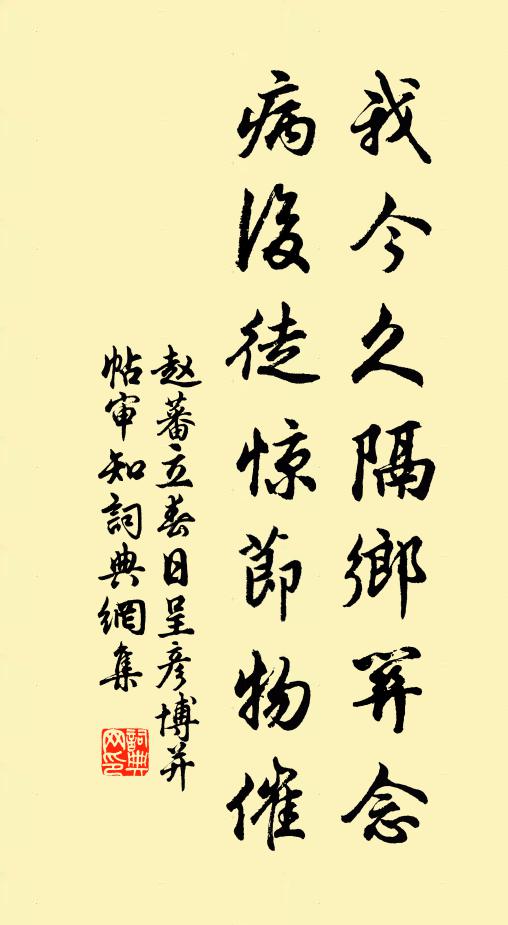 我今久隔鄉関念
病後徒惊節物催
赵蕃立春日呈彦博并
帖审知詞典網集
詞典网印